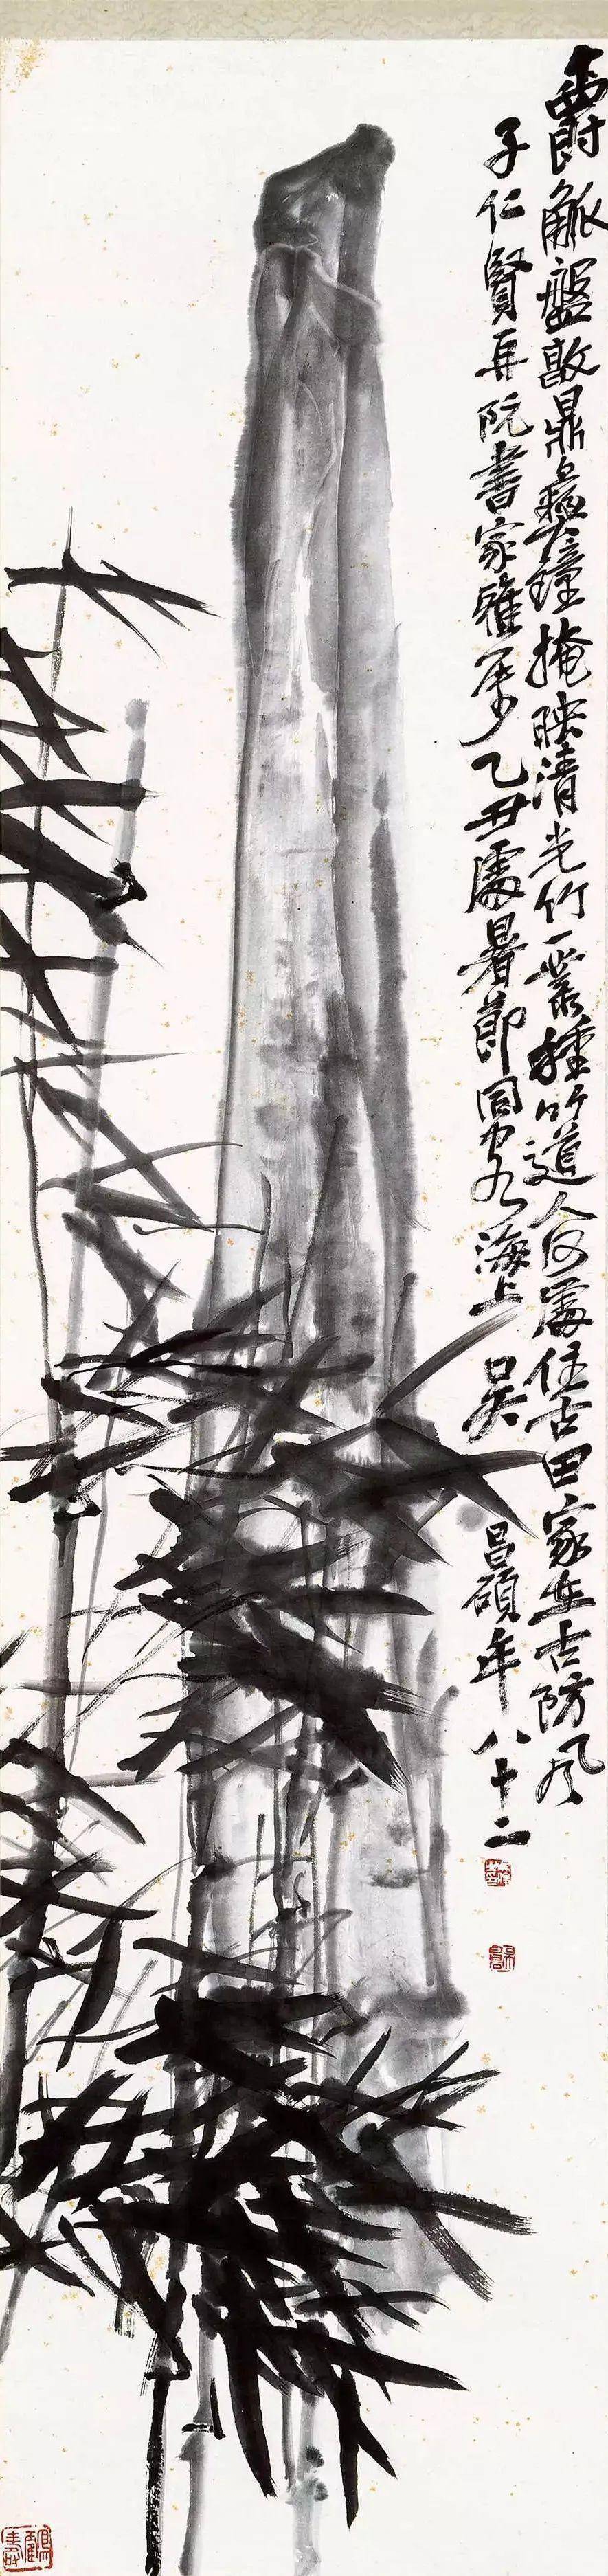 爵觚盤敦鼎彝鐘掩映清光竹一叢種竹道人何處住古田家在古防風
子仁賢再阮書家雅屬乙丑處暑節同客海上吳昌碩年八十二